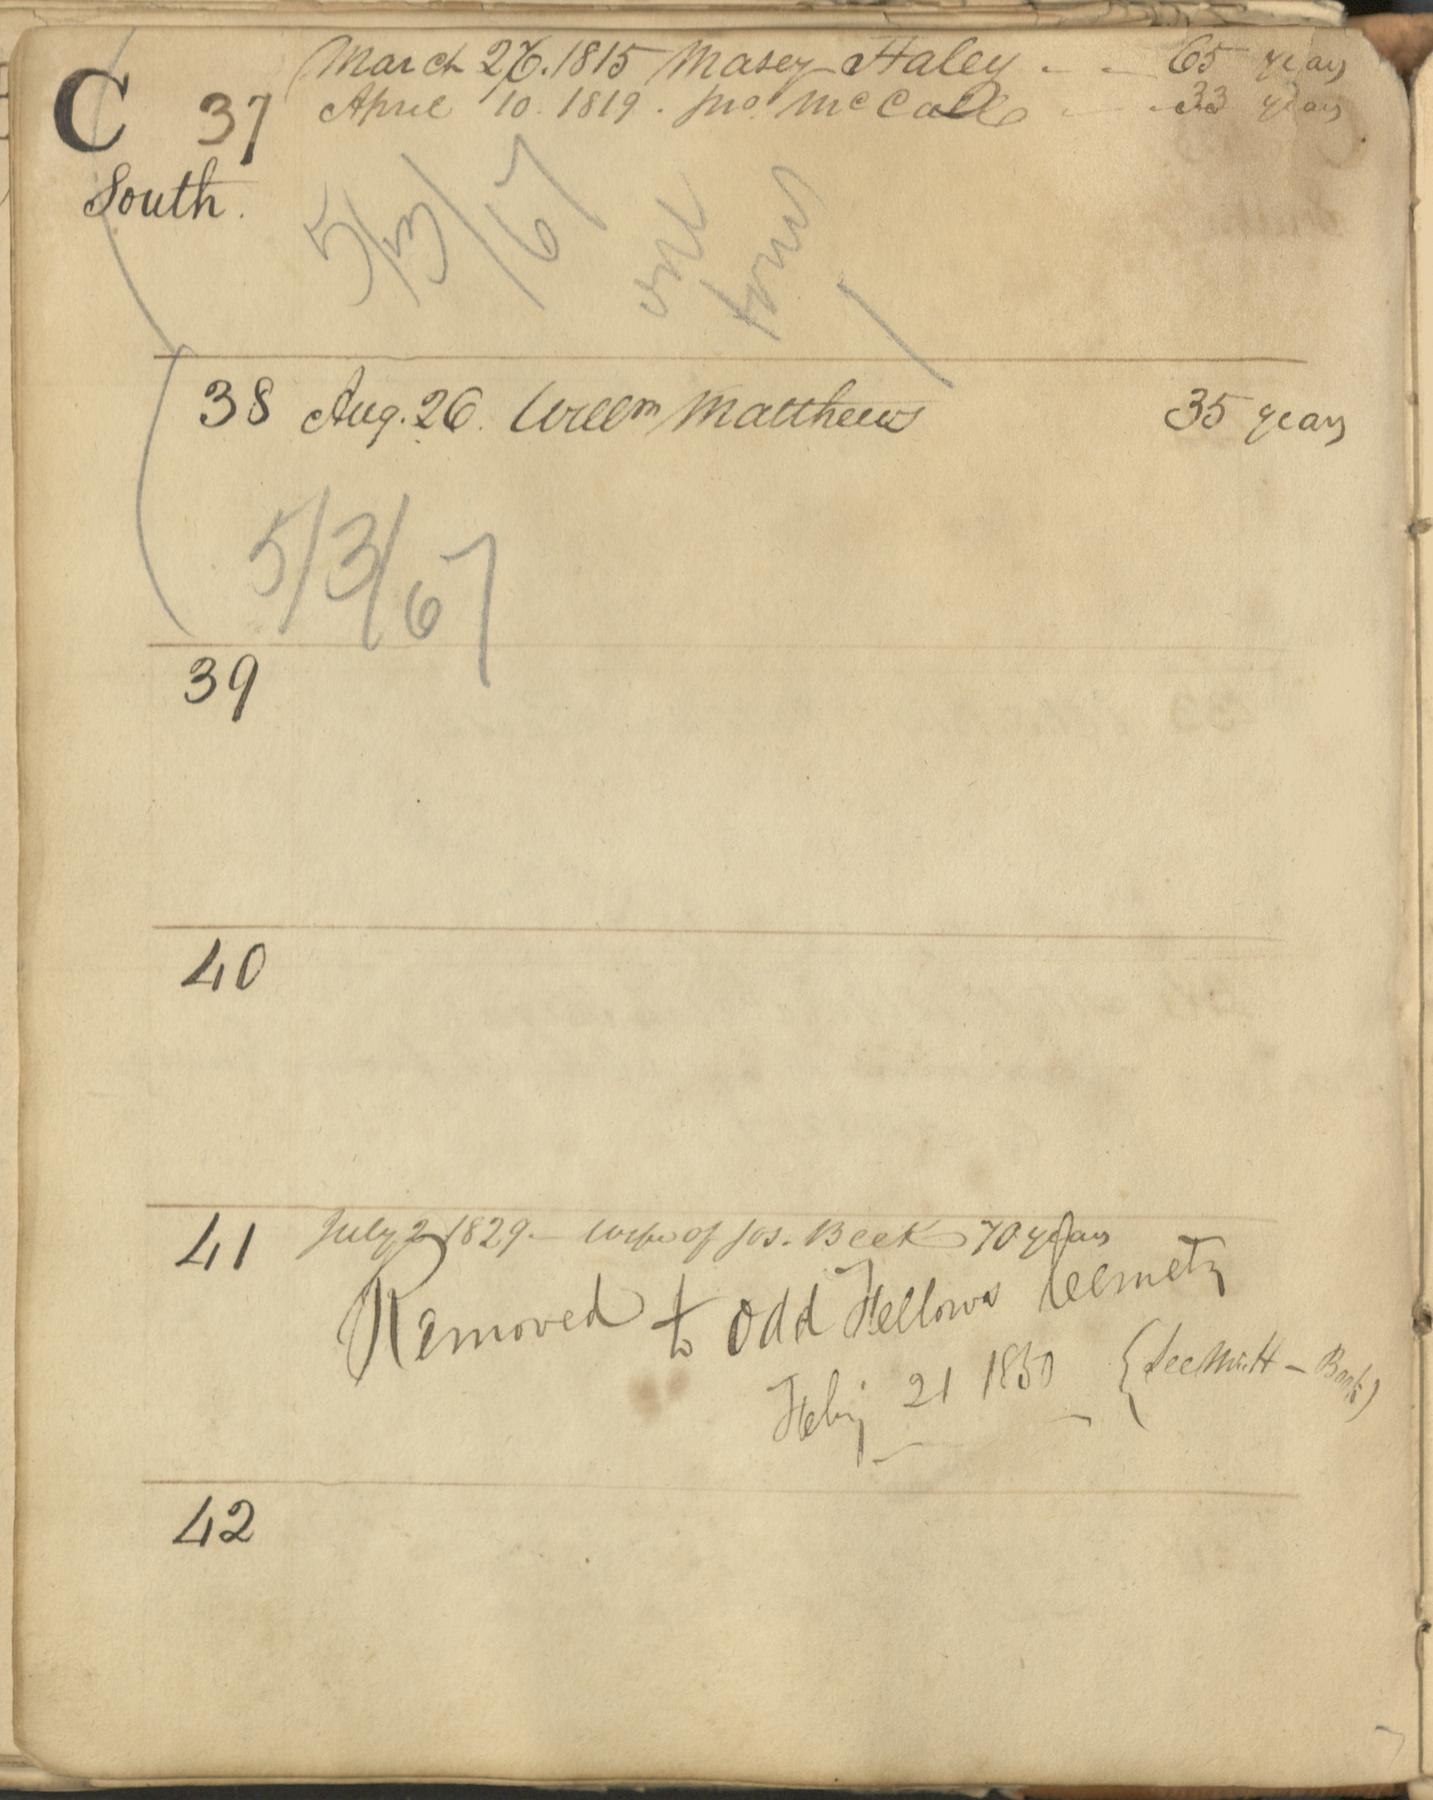 C 37 March 26. 1815 Masey Haley - - 65 years
April 10. 1819. Jno. McCall - - 33 years
South.
5/3/67
one
tomb
38 Aug. 26. Willm Matthews 35 years
5/3/67
39
40
41 July 2 1829 - wife of Jos. Beek 70 years
Removed to Odd Fellows Cemety
Feby 21 1850 { See - Book)
42